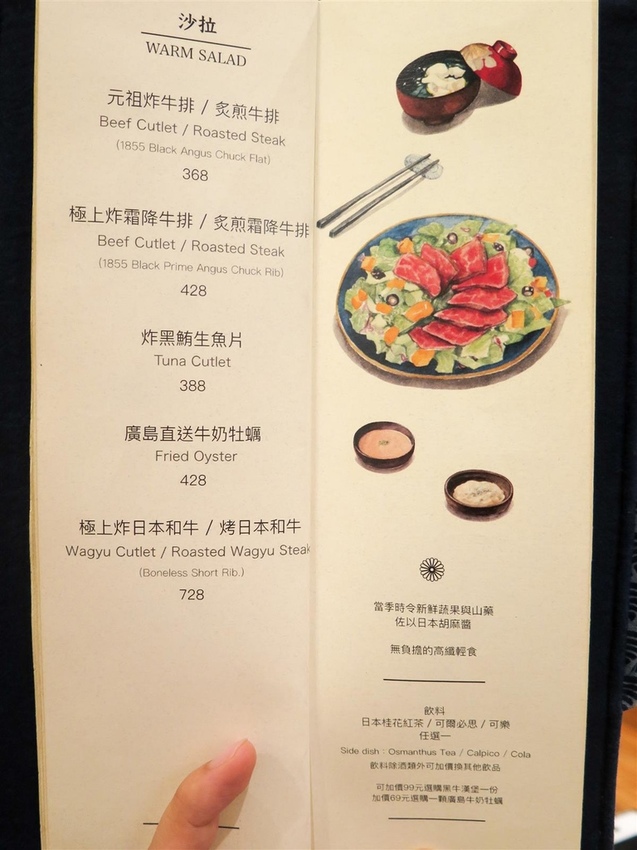 沙拉
WARM SALAD
元祖炸牛排 / 炙煎牛排
Beef Cutlet / Roasted Steak
(1855 Black Angus Chuck Flat)
368
極上炸霜降牛排 / 炙煎霜降牛排
Beef Cutlet / Roasted Steak
(1855 Black Prime Angus Chuck Rib)
428
炸黑鮪生魚片
Tuna Cutlet
388
廣島直送牛奶牡蠣
Fried Oyster
428
極上炸日本和牛 / 烤日本和牛
Wagyu Cutlet / Roasted Wagyu Steak
(Boneless Short Rib.)
728
當季時令新鮮蔬果與山藥
佐以日本胡麻醬
無負擔的高纖輕食
飲料
日本桂花紅茶 / 可爾必思 / 可樂
任選一
Side dish : Osmanthus Tea / Calpico / Cola
飲料除酒類外可加價換其他飲品
可加價99元選購黑牛漢堡一份
加價69元選購一顆廣島牛奶牡蠣